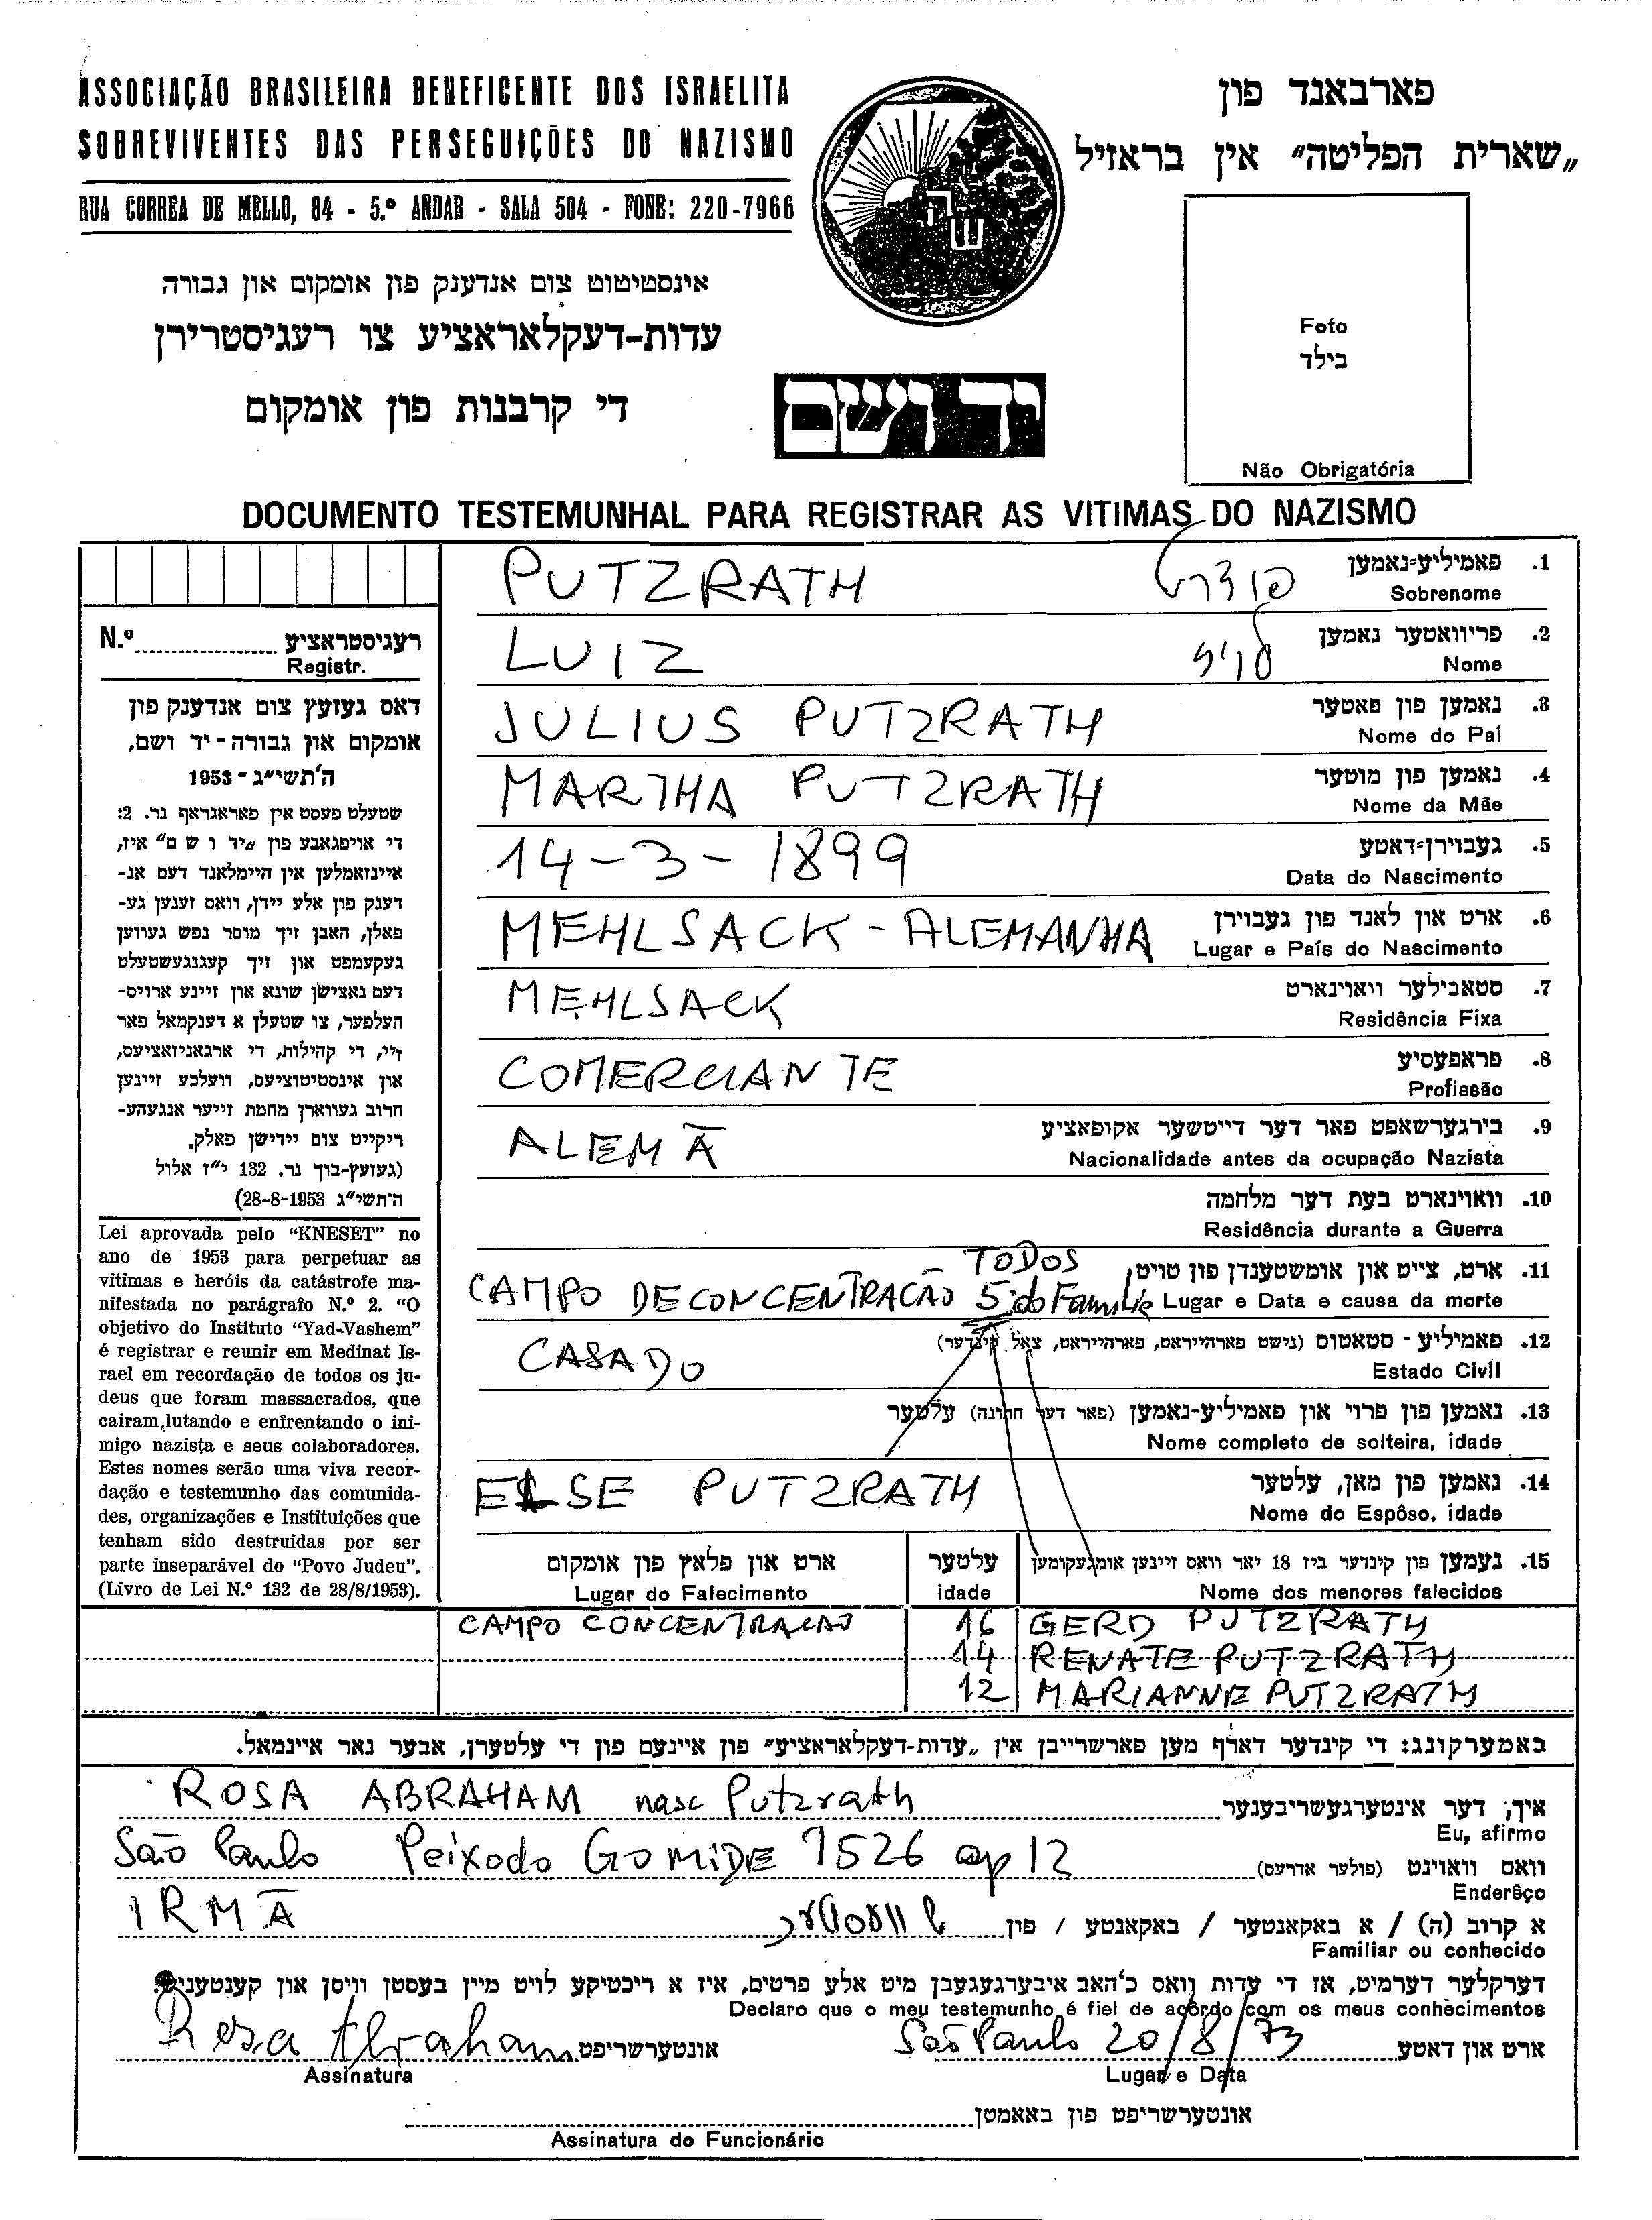 ASSOCIAÇÃO BRASILEIRA BENEFICENTE DOS ISRAELITA
SOBREVIVENTES DAS PERSEGUIÇÕES DO NAZISMO
RUA CORREA DE MELLO, 84 - 5.º ANDAR - SALA 504 - FONE: 220-7966
פארבאנד פון
„שארית הפליטה״ אין בראזיל
אינסטיטוט צום אנדענק פון אומקום און גבורה
עדות-דעקלאראציע צו רעגיסטרירן
די קרבנות פון אומקום
יד ושם
Foto
בילד
Não Obrigatória
DOCUMENTO TESTEMUNHAL PARA REGISTRAR AS VITIMAS DO NAZISMO
N.º רעגיסטראציע
Registr.
דאס געזעץ צום אנדענק פון
אומקום און גבורה - יד ושם,
ה׳תשי״ג - 1953
שטעלט פעסט אין פאראגראף נר. 2:
די אויפגאבע פון „יד ו ש ם״ איז,
איינזאמלען אין היימלאנד דעם אנ-
דענק פון אלע יידן, וואס זענען גע-
פאלן, האבן זיך מוסר נפש געווען
געקעמפט און זיך קעגנגעשטעלט
דעם נאצישן שונא און זיינע ארויס-
העלפער, צו שטעלן א דענקמאל פאר
זיי, די קהילות, די ארגאניזאציעס,
און אינסטיטוציעס, וועלכע זיינען
חרוב געווארן מחמת זייער אנגעהע-
ריקייט צום יידישן פאלק.
(געזעץ-בוך נר. 132 י״ז אלול
ה׳תשי״ג 28-8-1953)
Lei aprovada pelo "KNESET" no
ano de 1953 para perpetuar as
vitimas e heróis da catástrofe ma-
nifestada no parágrafo N.º 2. "O
objetivo do Instituto "Yad-Vashem"
é registrar e reunir em Medinat Is-
rael em recordação de todos os ju-
deus que foram massacrados, que
cairam,lutando e enfrentando o ini-
migo nazista e seus colaboradores.
Estes nomes serão uma viva recor-
dação e testemunho das comunida-
des, organizações e Instituições que
tenham sido destruidas por ser
parte inseparável do "Povo Judeu".
(Livro de Lei N.º 132 de 28/8/1953).
1. פאמיליע-נאמען
PUTZRATH
Sobrenome
2. פריוואטער נאמען
LUIZ לויס
Nome
3. נאמען פון פאטער
JULIUS PUTZRATH
Nome do Pai
4. נאמען פון מוטער
MARTHA PUTZRATH
Nome da Mãe
5. געבוירן-דאטע
14-3-1899
Data do Nascimento
6. ארט און לאנד פון געבוירן
MEHLSACK - ALEMANHA
Lugar e País do Nascimento
7. סטאבילער וואוינארט
MEHLSACK
Residência Fixa
8. פראפעסיע
COMERCIANTE
Profissão
9. בירגערשאפט פאר דער דייטשער אקופאציע
ALEMÃ
Nacionalidade antes da ocupação Nazista
10. וואוינארט בעת דער מלחמה
Residência durante a Guerra
11. ארט, צייט און אומשטענדן פון טויט
CAMPO DE CONCENTRACÃO - TODOS 5 do Familie
Lugar e Data e causa da morte
12. פאמיליע - סטאטוס (נישט פארהייראט, פארהייראט, צאל קינדער)
CASADO
Estado Civil
13. נאמען פון פרוי און פאמיליע-נאמען (פאר דער חתונה) עלטער
Nome completo de solteira, idade
14. נאמען פון מאן, עלטער
ELSE PUTZRATH
Nome do Espôso, idade
15. נעמען פון קינדער ביז 18 יאר וואס זיינען אומגעקומען עלטער ארט און פלאץ פון אומקום
Lugar do Falecimento idade Nome dos menores falecidos
CAMPO CONCENTRACAO 16 GERD PUTZRATH
14 RENATE PUTZRATH
12 MARIANNE PUTZRATH
באמערקונג: די קינדער דארף מען פארשרייבן אין „עדות-דעקלאראציע״ פון איינעם פון די עלטערן, אבער נאר איינמאל.
איך, דער אינטערגעשריבענער
ROSA ABRAHAM nasc Putzrath
Eu, afirmo
וואס וואוינט (פולער אדרעס)
São Paulo Peixodo GOMIDE 1526 ap 12
Enderêço
א קרוב (ה) / א באקאנטער / באקאנטע / פון
IRMÃ
Familiar ou conhecido
דערקלער דערמיט, אז די עדות וואס כ׳האב איבערגעגעבן מיט אלע פרטים, איז א ריכטיקע לויט מיין בעסטן וויסן און קענטעניש.
Declaro que o meu testemunho é fiel de acôrdo com os meus conhecimentos
Rosa Abraham אונטערשריפט São Paulo 20/8/73 ארט און דאטע
Assinatura Lugar e Data
אונטערשריפט פון באאמטן
Assinatura do Funcionário